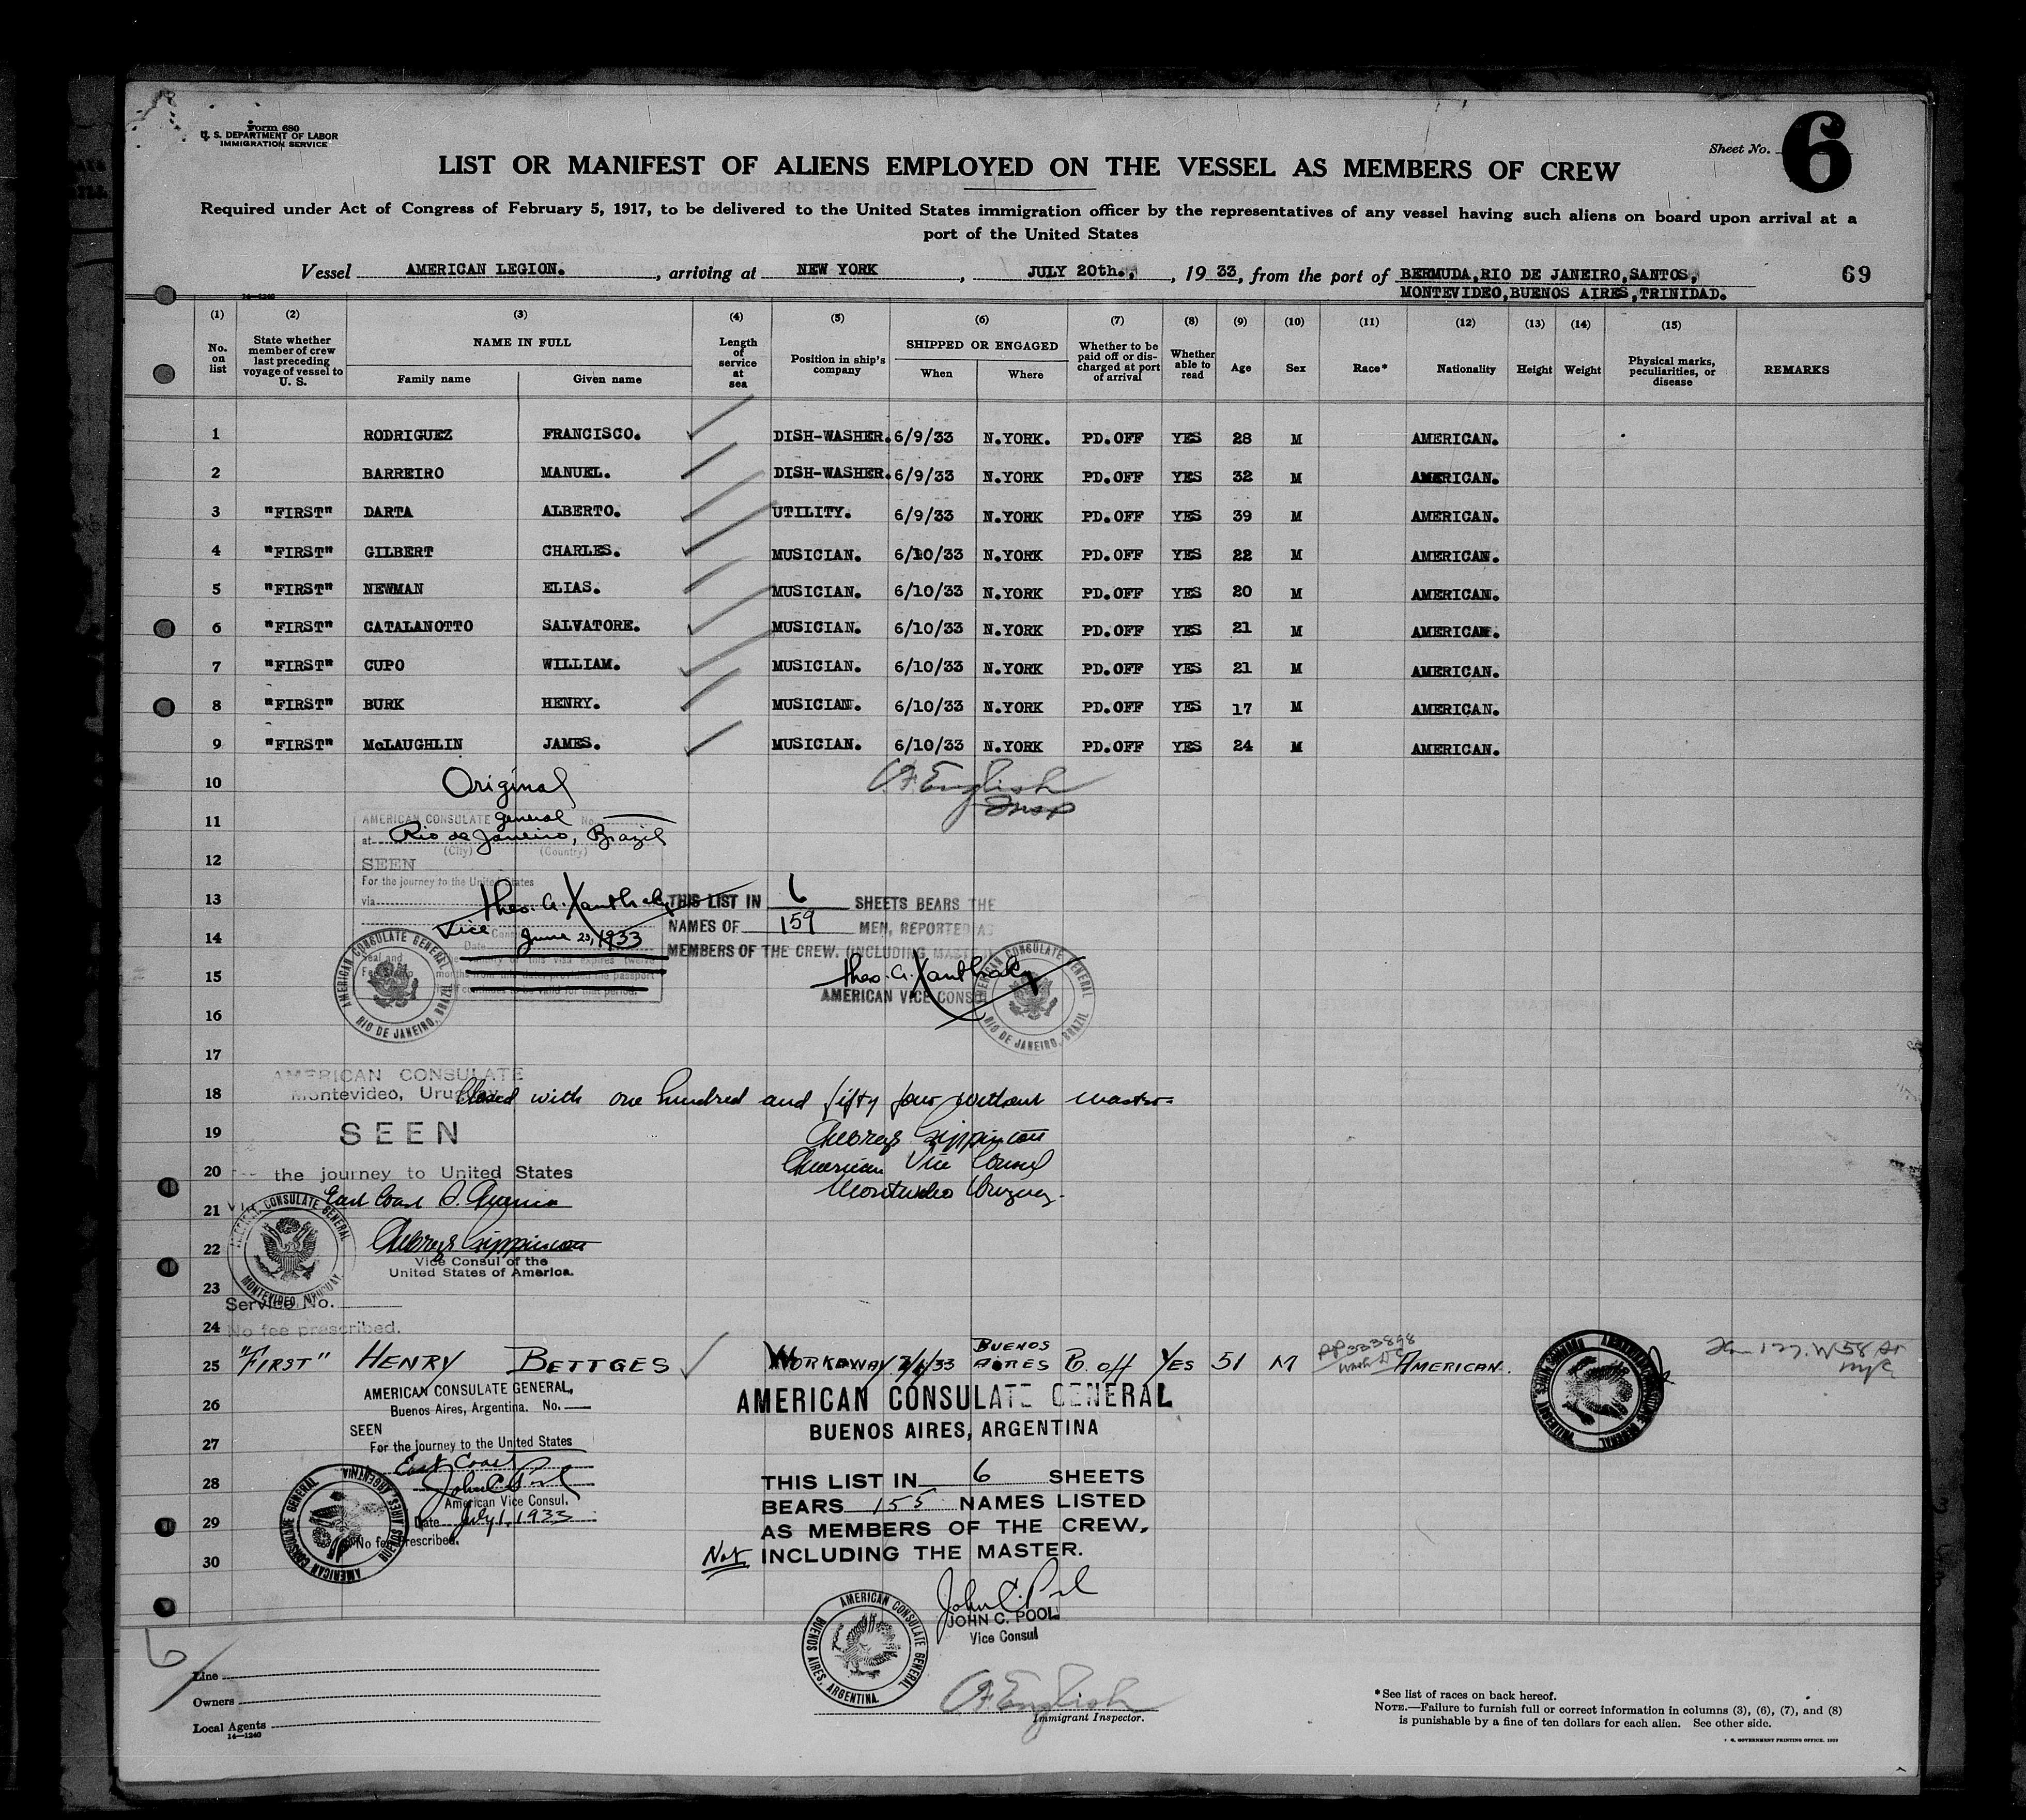 Form 680
U. S. DEPARTMENT OF LABOR
IMMIGRATION SERVICE
Sheet No. 6
LIST OR MANIFEST OF ALIENS EMPLOYED ON THE VESSEL AS MEMBERS OF CREW
Required under Act of Congress of February 5, 1917, to be delivered to the United States immigration officer by the representatives of any vessel having such aliens on board upon arrival at a
port of the United States
Vessel AMERICAN LEGION. , arriving at NEW YORK , JULY 20th., , 19 33, from the port of BERMUDA,RIO DE JANEIRO,SANTOS,
MONTEVIDEO,BUENOS AIRES,TRINIDAD.
69
14—1240
(1) No. on list
(2) State whether member of crew last preceding voyage of vessel to U. S.
(3) NAME IN FULL Family name Given name
(4) Length of service at sea
(5) Position in ship's company
(6) SHIPPED OR ENGAGED When Where
(7) Whether to be paid off or discharged at port of arrival
(8) Whether able to read
(9) Age
(10) Sex
(11) Race*
(12) Nationality
(13) Height
(14) Weight
(15) Physical marks, peculiarities, or disease
REMARKS
1 RODRIGUEZ FRANCISCO. DISH-WASHER. 6/9/33 N.YORK. PD.OFF YES 28 M AMERICAN.
2 BARREIRO MANUEL. DISH-WASHER. 6/9/33 N.YORK PD.OFF YES 32 M AMERICAN.
3 "FIRST" DARTA ALBERTO. UTILITY. 6/9/33 N.YORK PD.OFF YES 39 M AMERICAN.
4 "FIRST" GILBERT CHARLES. MUSICIAN. 6/10/33 N.YORK PD.OFF YES 22 M AMERICAN.
5 "FIRST" NEWMAN ELIAS. MUSICIAN. 6/10/33 N.YORK PD.OFF YES 20 M AMERICAN.
6 "FIRST" CATALANOTTO SALVATORE. MUSICIAN. 6/10/33 N.YORK PD.OFF YES 21 M AMERICAN.
7 "FIRST" CUPO WILLIAM. MUSICIAN. 6/10/33 N.YORK PD.OFF YES 21 M AMERICAN.
8 "FIRST" BURK HENRY. MUSICIAN. 6/10/33 N.YORK PD.OFF YES 17 M AMERICAN.
9 "FIRST" McLAUGHLIN JAMES. MUSICIAN. 6/10/33 N.YORK PD.OFF YES 24 M AMERICAN.
10 Original English
Insp
11 AMERICAN CONSULATE general No.
at Rio de Janeiro, Brazil
(City) (Country)
12 SEEN
For the journey to the United States
via
13 Theo. A. Xanthaky
Vice
June 23, 1933
Date
THIS LIST IN 6 SHEETS BEARS THE
NAMES OF 159 MEN, REPORTED AS
14 MEMBERS OF THE CREW. (INCLUDING MASTER)
15 Theo. A. Xanthaky
AMERICAN VICE CONSUL
AMERICAN CONSULATE GENERAL RIO DE JANEIRO, BRAZIL
AMERICAN CONSULATE GENERAL RIO DE JANEIRO, BRAZIL
16
17
AMERICAN CONSULATE
Montevideo, Uruguay
18 Closed with one hundred and fifty four without master=
19 SEEN
American Vice Consul
Montevideo Uruguay.
20 the journey to United States
21 East Coast S. America
22
Vice Consul of the
United States of America.
CONSULATE GENERAL MONTEVIDEO, URUGUAY.
23 Service No.
24 No fee prescribed.
25 "FIRST" HENRY BETTGES WORKAWAY 7/1/33 BUENOS AIRES P. off YES 51 M PP333898 Wash DC AMERICAN. 127 W 58 St
NYC
AMERICAN CONSULATE GENERAL,
Buenos Aires, Argentina. No.
26 AMERICAN CONSULATE GENERAL
BUENOS AIRES, ARGENTINA
SEEN
27 For the journey to the United States
East Coast
28 John C. Pool
American Vice Consul.
29 Date July 1, 1933
No fee prescribed.
30
THIS LIST IN 6 SHEETS
BEARS 155 NAMES LISTED
AS MEMBERS OF THE CREW,
Not INCLUDING THE MASTER.
AMERICAN CONSULATE GENERAL BUENOS AIRES, ARGENTINA
AMERICAN CONSULATE GENERAL BUENOS AIRES, ARGENTINA.
John C. Pool
JOHN C. POOL
Vice Consul
6
Line
Owners
Local Agents
14—1240
English
Immigrant Inspector.
* See list of races on back hereof.
NOTE.—Failure to furnish full or correct information in columns (3), (6), (7), and (8)
is punishable by a fine of ten dollars for each alien. See other side.
GOVERNMENT PRINTING OFFICE